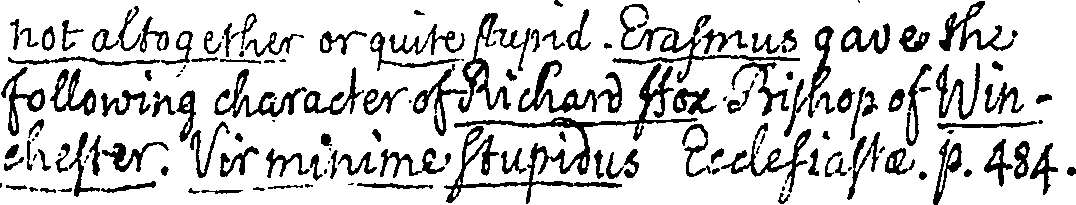 not altogether or quite ſtupid. Eraſmus gave the
following character of Richard ffox Biſhop of Win-
cheſter. Vir minime ſtupidus Eccleſiaſtæ. p. 484.